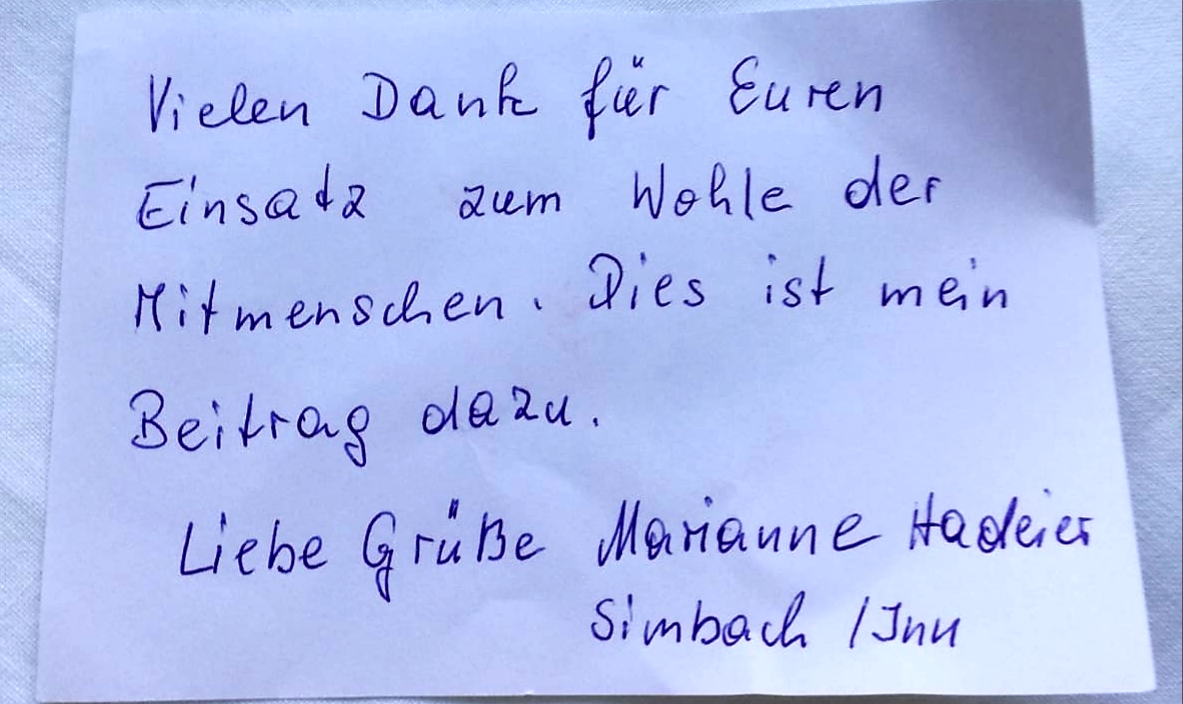 Vielen Dank für Euren
Einsatz zum Wohle der
Mitmenschen. Dies ist mein
Beitrag dazu.
Liebe Grüße Marianne
Simbach / Inn